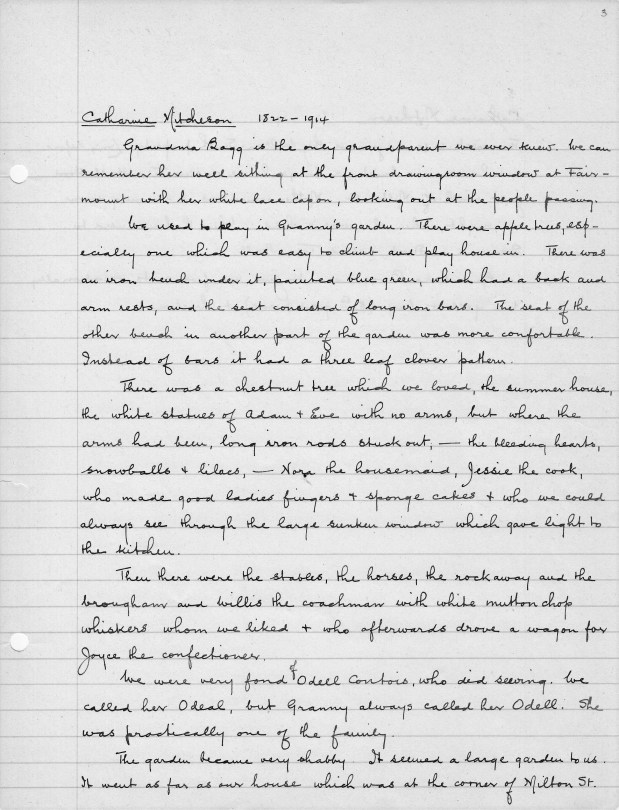 3
Catharine Mitcheson 1822-1914
Grandma Bagg is the only grandparent we ever knew. We can
remember her well sitting at the front drawingroom window at Fair-
mount with her white lace cap on, looking out at the people passing.
We used to play in Granny's garden. There were apple trees, esp-
ecially one which was easy to climb and play house in. There was
an iron bench under it, painted blue green, which had a back and
arm rests, and the seat consisted of long iron bars. The seat of the
other bench in another part of the garden was more confortable.
Instead of bars it had a three leaf clover pattern.
There was a chestnut tree which we loved, the summer house,
the white statues of Adam + Eve with no arms, but where the
arms had been, long iron rods stuck out, — the bleeding hearts,
snowballs + lilacs, — Nora the housemaid, Jessie the cook,
who made good ladies fingers + sponge cakes + who we could
always see through the large sunken window which gave light to
the kitchen.
Then there were the stables, the horses, the rockaway and the
brougham and Willis the coachman with white mutton chop
whiskers whom we liked + who afterwards drove a wagon for
Joyce the confectioner.
We were very fond of Odell Contois, who did sewing. We
called her Odeal, but Granny always called her Odell. She
was practically one of the family.
The garden became very shabby. It seemed a large garden to us.
It went as far as our house which was at the corner of Milton St.